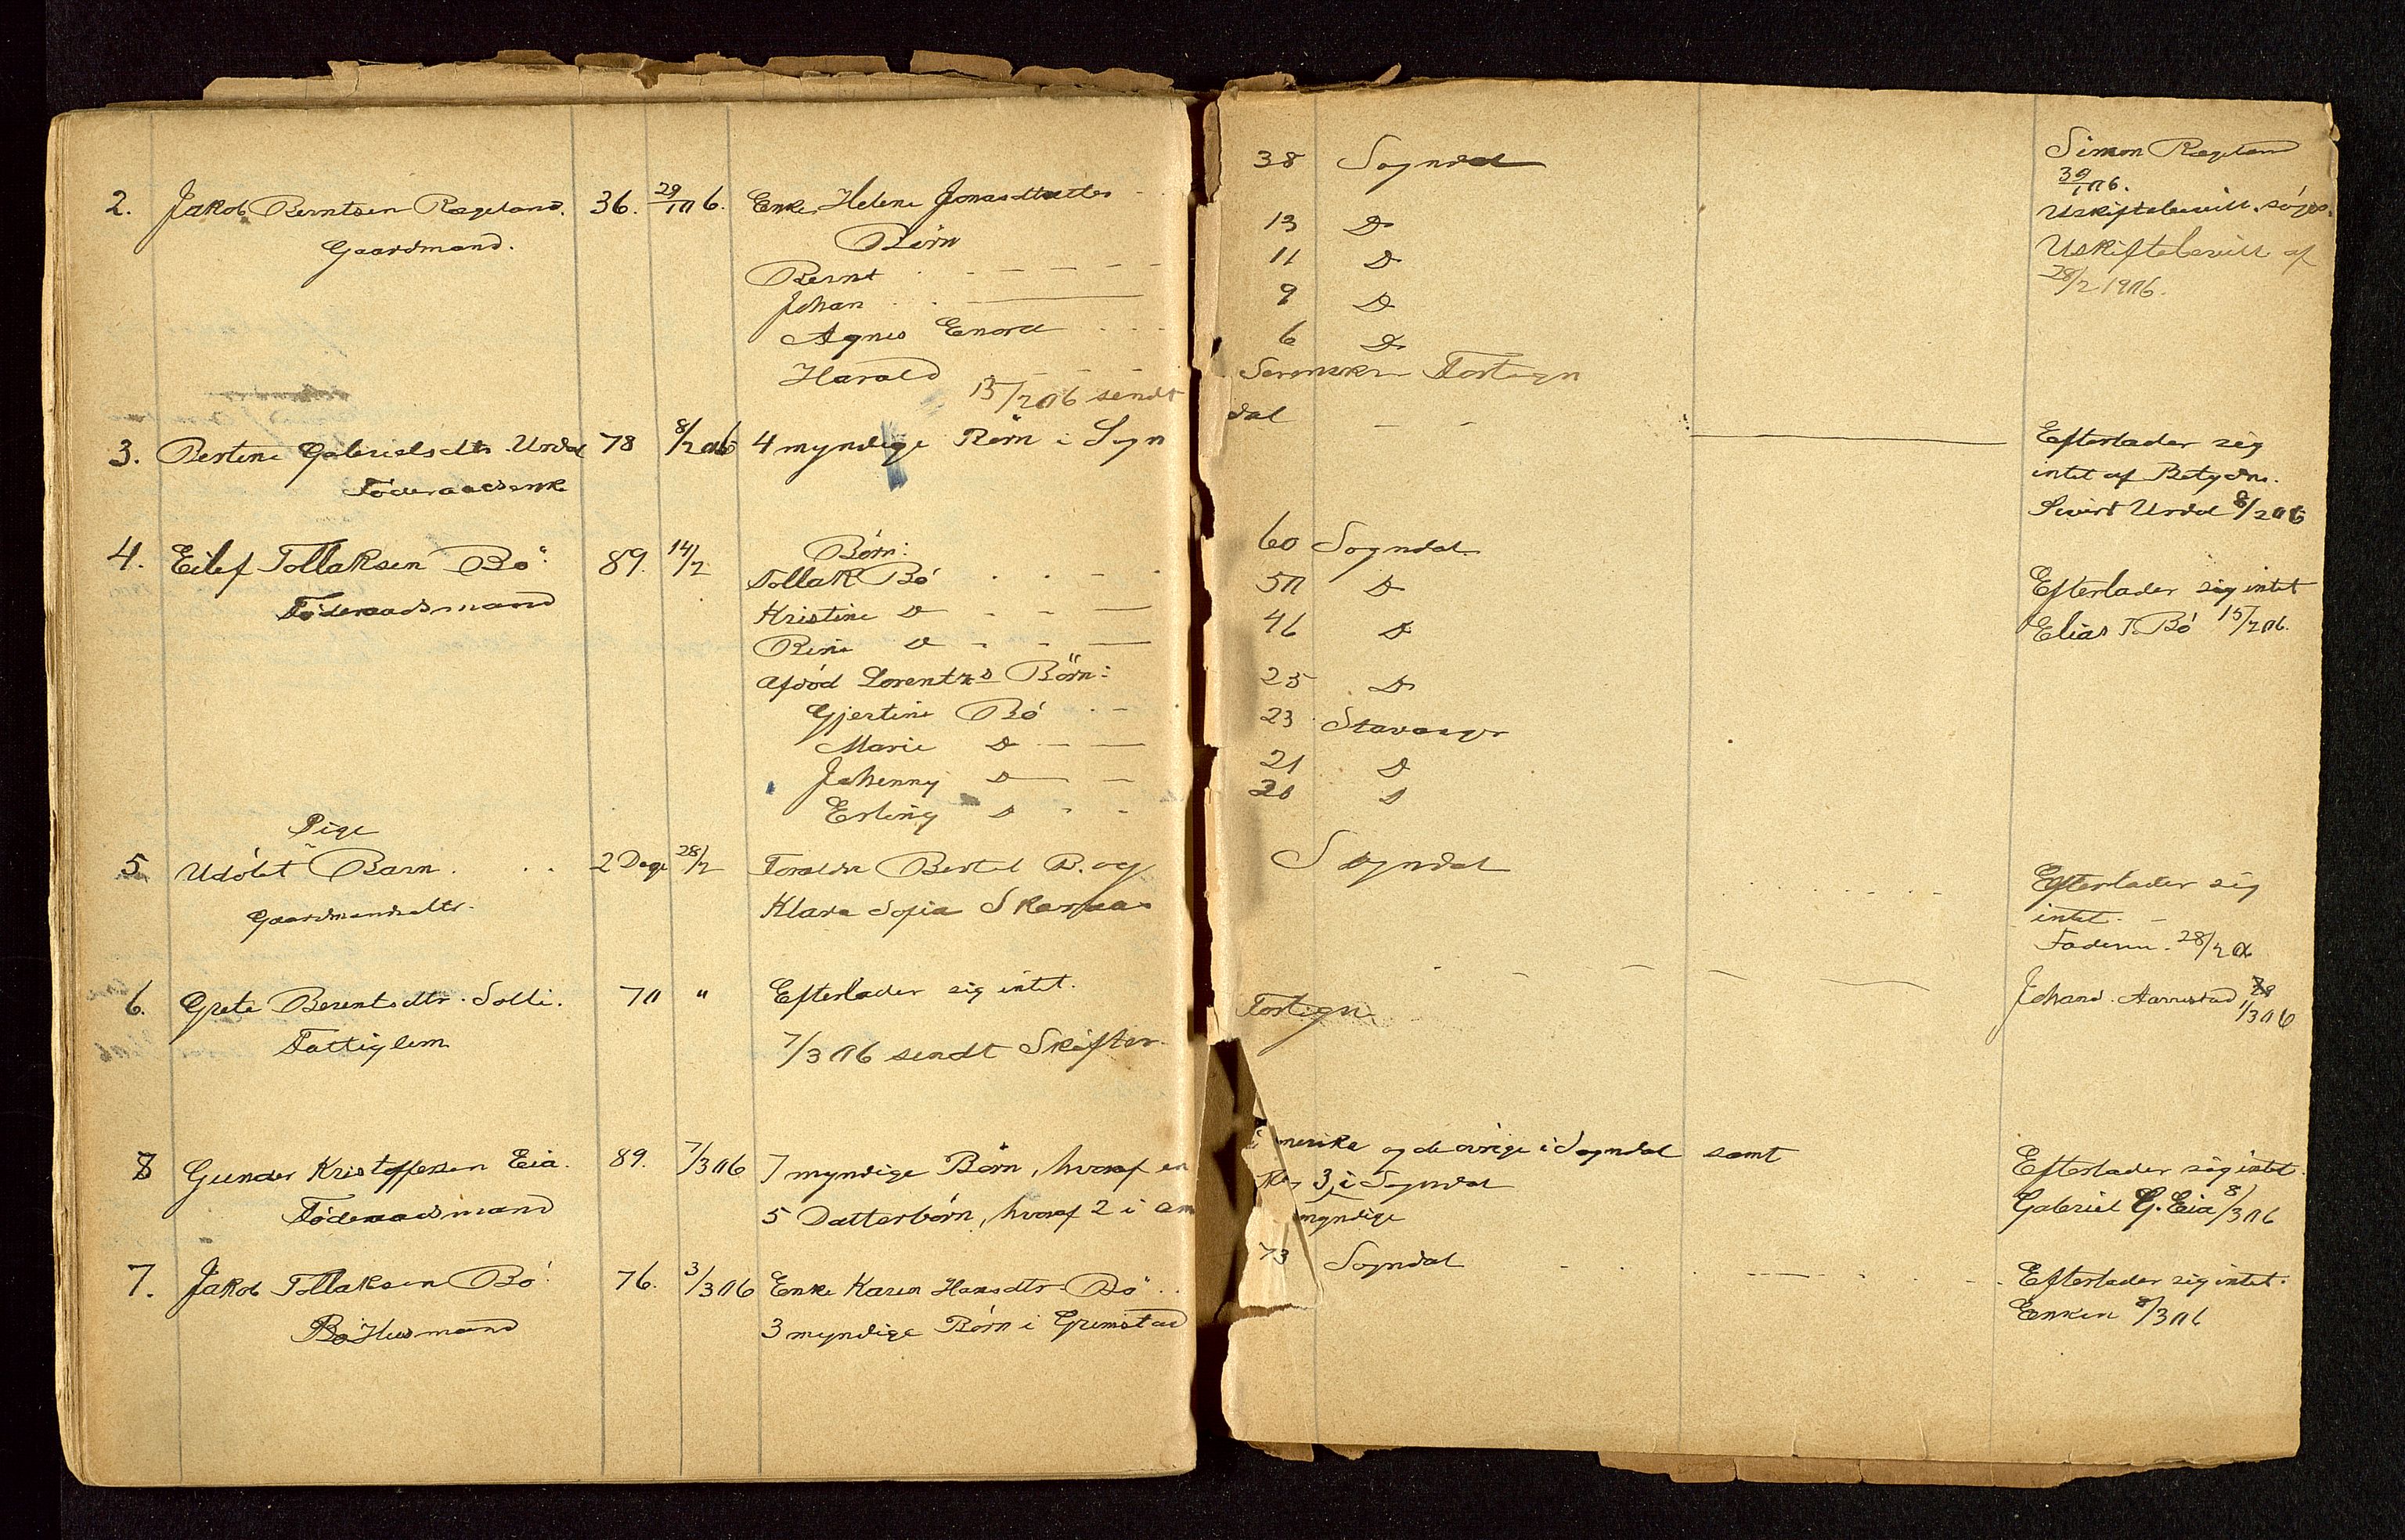 2. Jakob Berntsen Rægeland. 36. 29/1 06. Enke Helene Jonasdtatter 38 Sogndal Simon Rægeland
Gaardmand. Børn 30/1 06.
Bernt 13 D Uskiftebevill. søges.
Johan 11 D Uskiftebevill af
Agnes Enora 9 D 28/2 1906.
Harald 6 D
15/2 06 sendt Fortegn
3. Bertine Gabrielsdtr. Urdal 78 8/2 06 4 myndige Børn i Sogn dal Efterlader sig
Føderaadsenke intet af Betydn.
Sivert Urdal 8/2 06
4. Eilef Tollaksen Bø 89. 14/2 Børn:
Føderaadsmand Tollak Bø 60 Sogndal Efterlader sig intet
Kristine D 50 D Elias T. Bø 15/2 06.
Rine D 46 D
Afdød Lorentzs Børn:
Gjertine Bø 25 D
Marie D 23 Stavanger
Johenny D 21 D
Erling D 20 D
Pige
5. Udøbt Barn. 2 Dage 28/2 Foraldre Bertel B. og Sogndal Efterlader sig
Gaardmandsdtr. Klara Sofia Skaraas intet.
Faderen. 28/2 06
6. Grete Berentsdtr. Solli. 70 " Efterlader sig intet. Johans. Aarrestad 1/3 06
Fattiglem 7/3 06 sendt Skifter- Fortegn
8 Gunder Kristoffersen Eia. 89. 7/3 06 7 myndige Børn, hvoraf en merika og de øvrige i Sogndal samt Efterlader sig intet.
Føderaadsmand 5 Datterbørn, hvoraf 2 i am 3 i Sogndal Gabriel G. Eia 8/3 06
myndige
7. Jakob Tollaksen Bø 76. 3/3 06 Enke Karen Hansdtr. Bø 73 Sogndal Efterlader sig intet.
Husmand 3 myndige Børn i Grimstad Enken 8/3 06